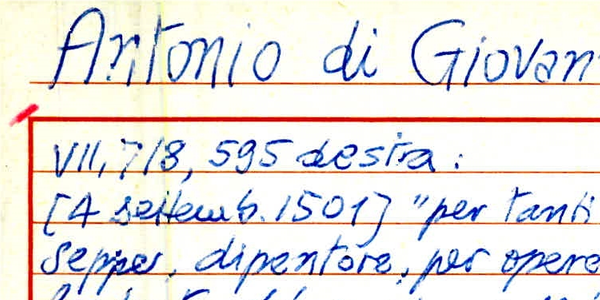 Antonio di Giovan
VII, 7/8, 595 destra:
[4 settemb. 1501] "per tanti
dipentore, per opere